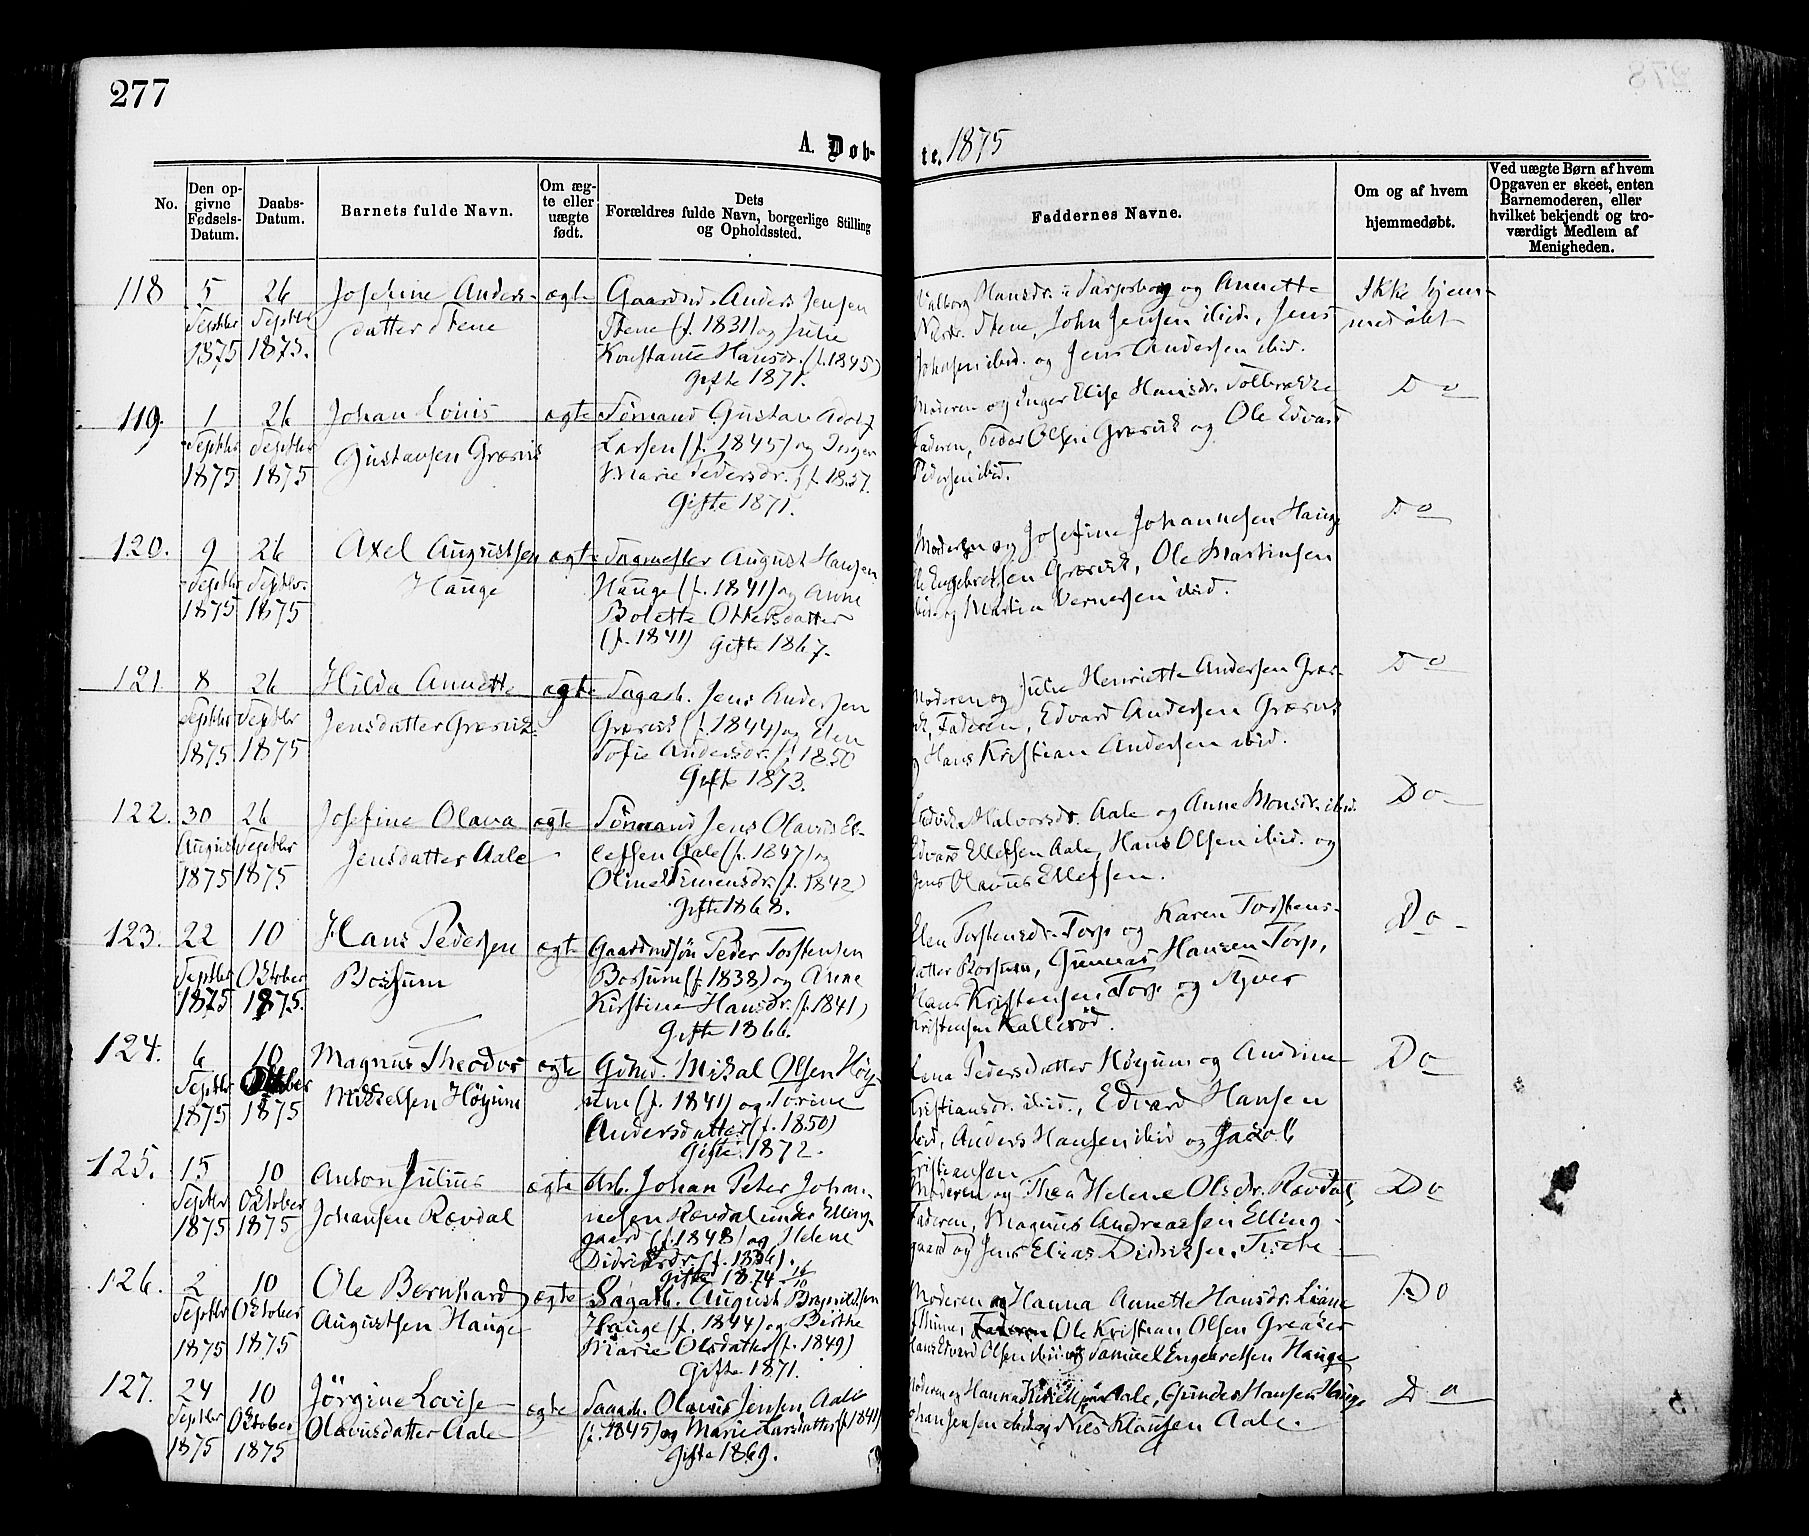 277
A. Døb-
te. 1875
No.
Den op-
givne
Fødsels-
Datum.
Daabs-
Datum.
Barnets fulde Navn.
Om æg-
te eller
uægte
født.
Dets
Forældres fulde Navn, borgerlige Stilling
og Opholdssted.
Faddernes Navne.
Om og af hvem
hjemmedøbt.
Ved uægte Børn af hvem
Opgaven er skeet, enten
Barnemoderen, eller
hvilket bekjendt og tro-
værdigt Medlem af
Menigheden.
118
5
Septbr
1875
26
Septbr
1875.
Josefine Anders-
datter Stene
ægte
Gaardmd. Anders Jensen
Stene (f. 1831) og Julie
Konstance Hansdr. (f. 1845)
Gifte 1871.
Valborg Hansdr. i Sarpsborg og Annette
Stene, John Jensen ibid., Jens
Johnsen ibid. og Jens Andersen ibid.
Ikke hjem-
medøbt
119.
1
Septbr
1875
26
Septbr
1875
Johan Louis
Gustavsen Græsvig
ægte
Sømand Gustav Adolf
Larsen (f. 1845) og Inger
Marie Pedersdr. (f. 1837.
Gifte 1871.
Moderen og Inger Elise Hansdr.
Faderen, Peder Olsen Græsvik og Ole Edvard
Pedersen ibid.
Do
120.
9
Septbr
1875
26
Septbr.
1875
Axel Augustsen
Hauge
ægte
Sagmester August Hansen
Hauge (f. 1841) og Anne
Bolette Ottersdatter
(f. 1841) Gifte 1867.
Moderen og Josefine Johannesen Hauge
Ole Engebretsen Græsvik, Ole Martinsen
ibid. og Martin Vernersen ibid.
Do
121
8
Septbr
1875
26
Septbr
1875
Hilda Annette
Jensdatter Græsvik
ægte
Sagarb. Jens Andersen
Græsvik (f. 1844) og Elen
Sofie Andersdr. (f. 1850
Gifte 1873.
Moderen og Julie Henriette Andersen Græs-
vik, Faderen, Edvard Andersen Græsvik
og Hans Kristian Andersen ibid.
Do
122.
30
August
1875
26
Septbr
1875
Josefine Olava
Jensdatter Aale
ægte
Sømand Jens Olavus El-
lefsen Aale (f. 1847) og
Oline Simensdr. (f. 1842)
Gifte 1868.
Halvorsdr. Aale og Anne Monsdr. ibid.
Edvard Ellefsen Aale, Hans Olsen ibid. og
Jens Olavus Ellefsen.
Do
123.
22
Septbr
1875
10
Oktober
1875.
Hans Pedersen
Bossum
ægte
Gaardmdsøn Peder Torstensen
Bossum (f. 1838) og Anne
Kirstine Hansdr. (f. 1841)
Gifte 1866.
Elen Torstensdr. Torp og Karen Torstens-
datter Bossum, Gunnar Hansen Torp,
Hans Kristensen Torp og Syver
Kristensen Kallerød.
Do
124.
6
Septbr
1875
10
Oktober
1875
Magnus Theodor
Mikkelsen Høyum
ægte
Gdmd. Mikal Olsen Høy-
um (f. 1841) og Torine
Andersdatter (f. 1850)
Gifte 1872.
Lena Pedersdatter Høyum og Andrine
Kristiansdr. ibid., Edvard Hansen
ibid., Anders Hansen ibid og Jacob
Kristiansen
Do
125.
15
Septbr
1875
10
Oktober
1875
Anton Julius
Johansen Rævdal
ægte
Arb. Johan Peter Johan-
nesen Rævdal under Elling-
gaard (f. 1848) og Helene
Didriksdr. (f. 1836).
Gifte 1874
Moderen og Thea Helene Olsdr. Rævdal,
Faderen, Magnus Andreasen Elling-
gaard og Jens Elias Didriksen
Do
126.
2
Septbr
1875
10
Oktober
1875
Ole Bernhard
Augustsen Hauge
ægte
Sagarb. August
Hauge (f. 1844) og Birthe
Marie Olsdatter (f. 1849)
Gifte 1871.
Moderen og Hanna Annette Hansdr.
Ole Kristian Olsen Greaker
Hans Edvard Olsen ibid og Samuel Engebretsen Hauge
Do
127.
24
Septbr
1875
10
Oktober
1875
Jørgine Lovise
Olavusdatter Aale
ægte
Sagarb. Olavus Jensen Aale
(f. 1845) og Marie Larsdatter (f. 1841)
Gifte 1869.
Moderen og Hanna Aale, Gunder Hansen Hauge
Johan Jensen ibid og Nils Klausen Aale.
Do